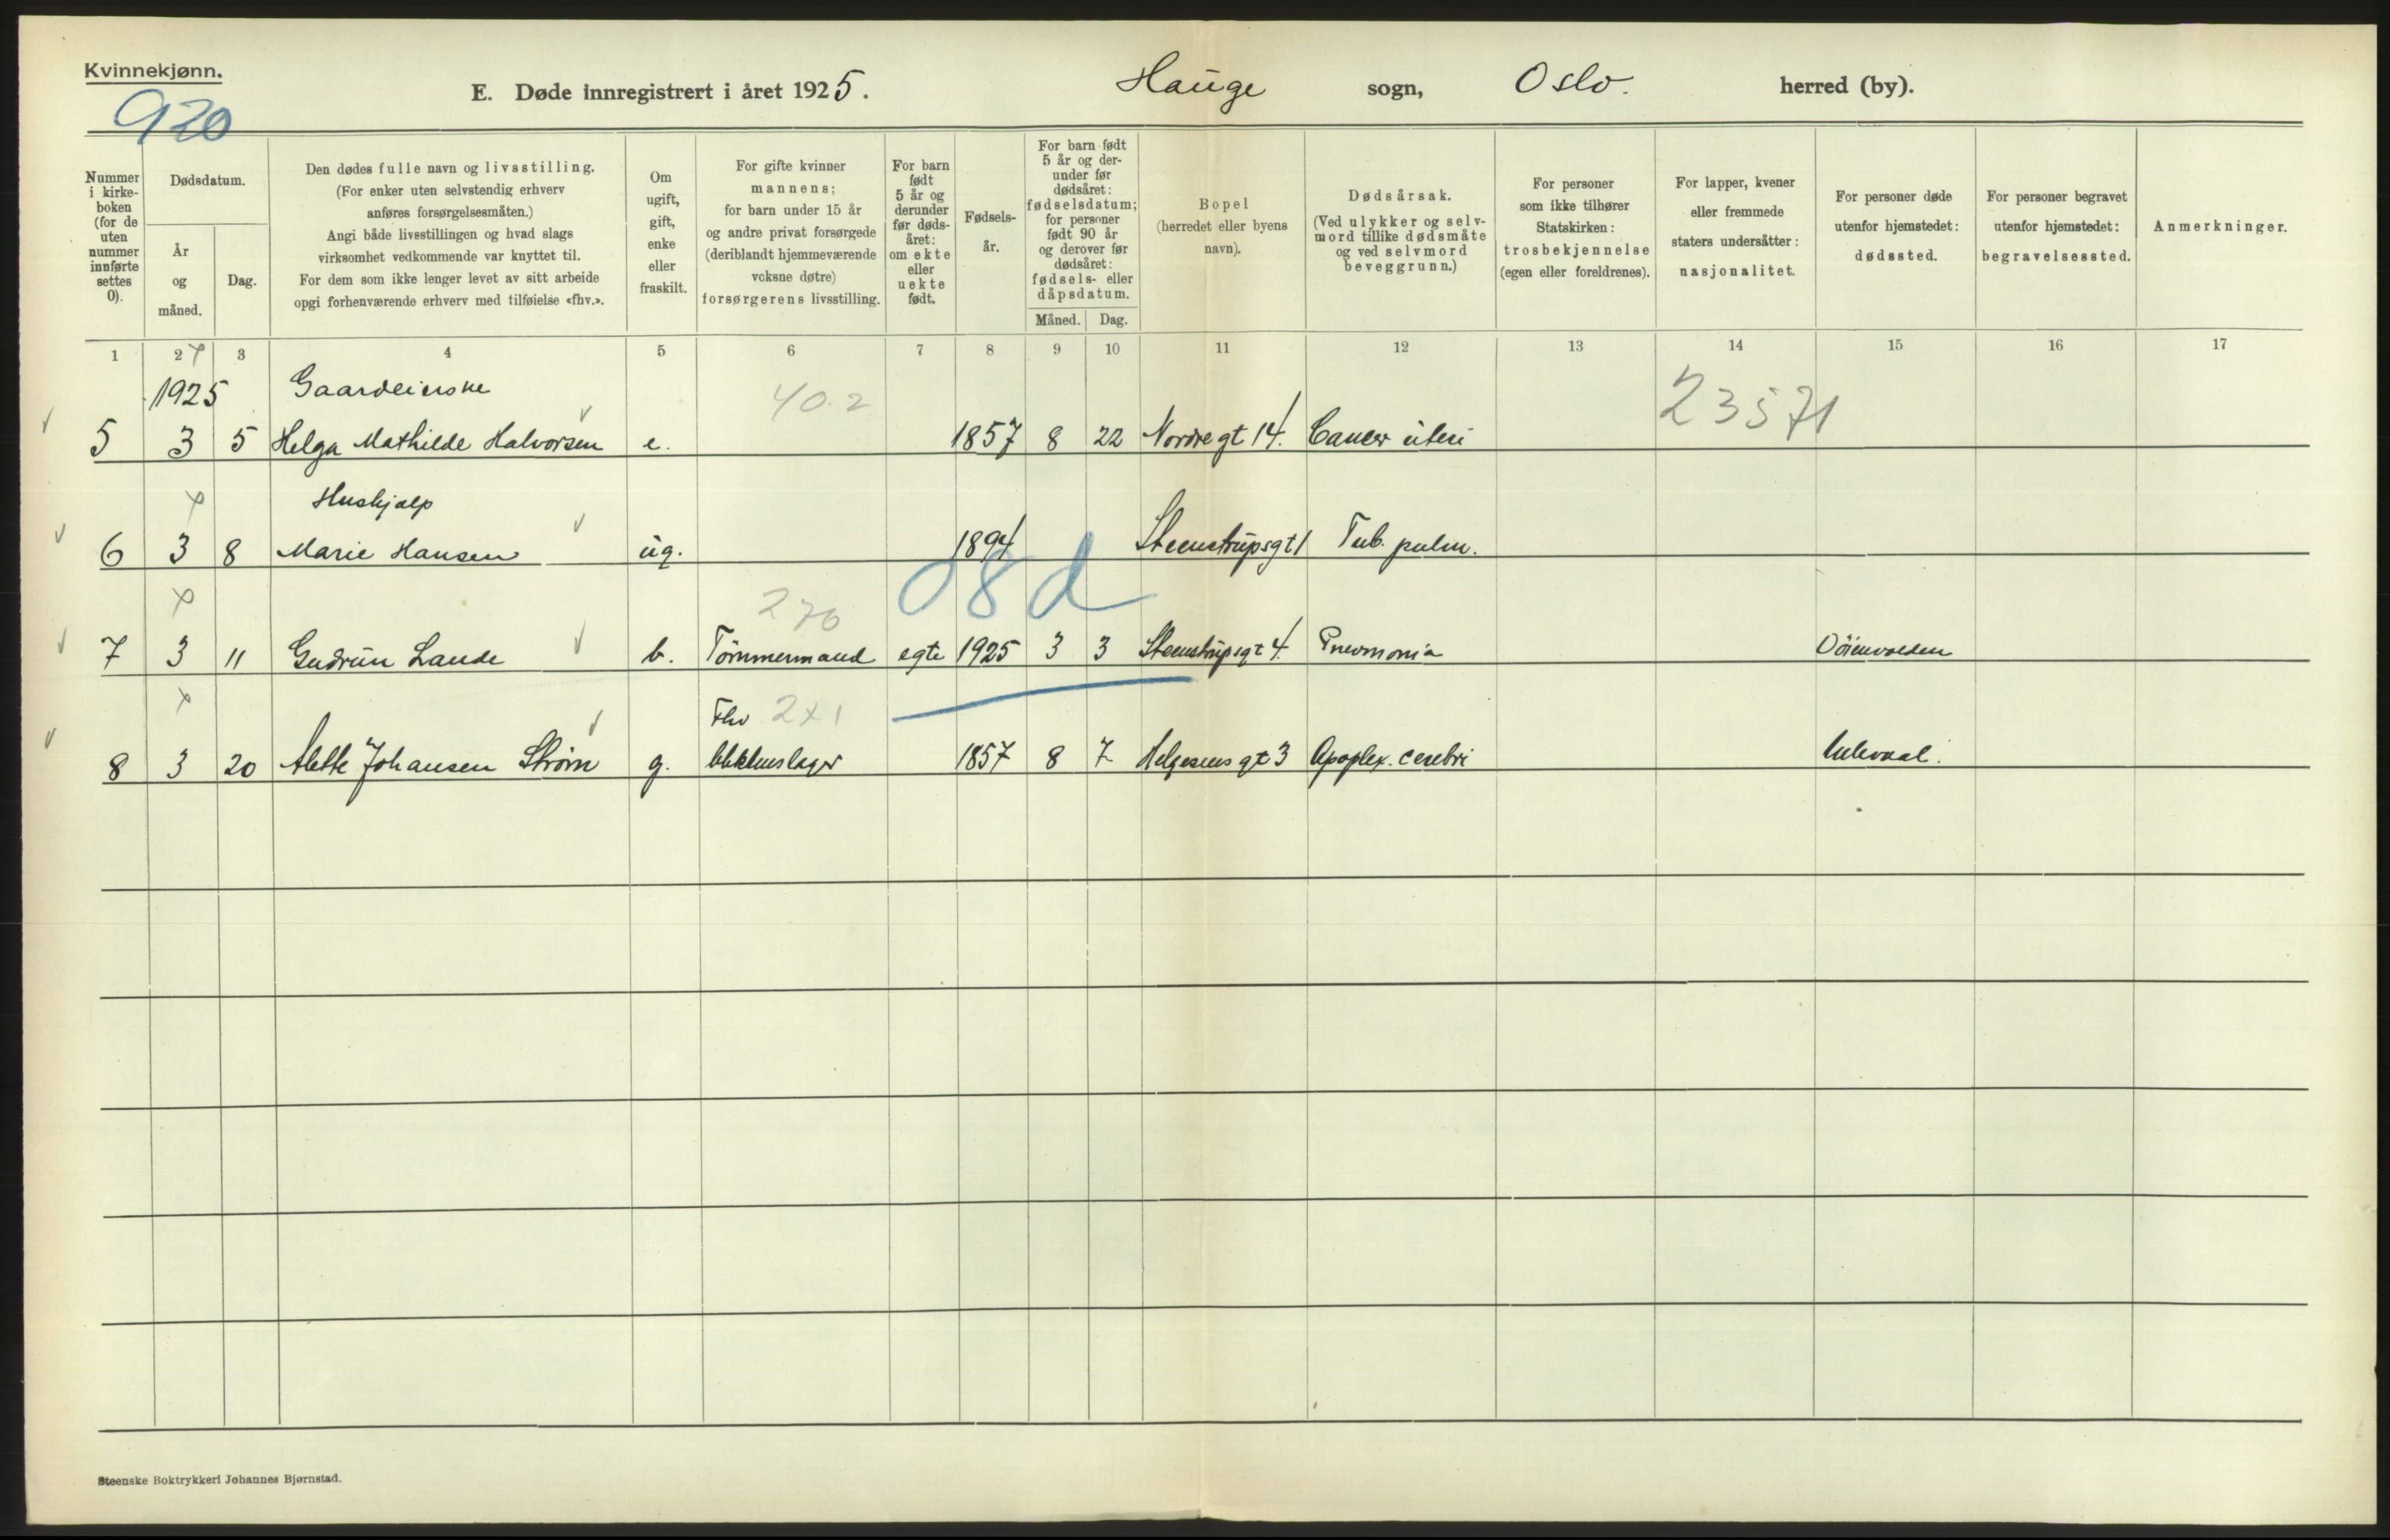 Kvinnekjønn.
920
E. Døde innregistrert i året 1925. Hauge sogn, Oslo. herred (by).
Nummer i kirke-boken (for de uten nummer innførte settes 0).
Dødsdatum.
År og måned.
Dag.
Den dødes fulle navn og livsstilling.
(For enker uten selvstendig erhverv
anføres forsørgelsesmåten.)
Angi både livsstillingen og hvad slags
virksomhet vedkommende var knyttet til.
For dem som ikke lenger levet av sitt arbeide
opgi forhenværende erhverv med tilføielse «fhv.».
Om
ugift,
gift,
enke
eller
fraskilt.
For gifte kvinner
mannens;
for barn under 15 år
og andre privat forsørgede
(deriblandt hjemmeværende
voksne døtre)
forsørgerens livsstilling.
For barn
født
5 år og
derunder
før døds-
året:
om ekte
eller
uekte
født.
Fødsels-
år.
For barn født
5 år og der-
under før
dødsåret:
fødselsdatum;
for personer
født 90 år
og derover før
dødsåret:
fødsels- eller
dåpsdatum.
Måned. Dag.
Bopel
(herredet eller byens
navn).
Dødsårsak.
(Ved ulykker og selv-
mord tillike dødsmåte
og ved selvmord
beveggrunn.)
For personer
som ikke tilhører
Statskirken:
trosbekjennelse
(egen eller foreldrenes).
For lapper, kvener
eller fremmede
staters undersåtter:
nasjonalitet.
For personer døde
utenfor hjemstedet:
dødssted.
For personer begravet
utenfor hjemstedet:
begravelsessted.
Anmerkninger.
1 2 3 4 5 6 7 8 9 10 11 12 13 14 15 16 17
1925 Gaardeierske 40.2 23571
5 3 5 Helga Mathilde Halvorsen e. 1857 8 22 Nordregt 14. Cancer uteri
Hushjælp
6 3 8 Marie Hansen ug. 1894 Steenstrupsgt 1 Tub. pulm.
270 08d
7 3 11 Gudrun Lande b. Tømmermand egte 1925 3 3 Steenstrupsgt 4. Pneumonia Döienvolden
Fhv 2x1
8 3 20 Alette Johansen Strøm g. blikkenslager 1857 8 7 Helgesens gt 3 Apoplex. cerebri Ullevaal.
Steenske Boktrykkeri Johannes Bjørnstad.